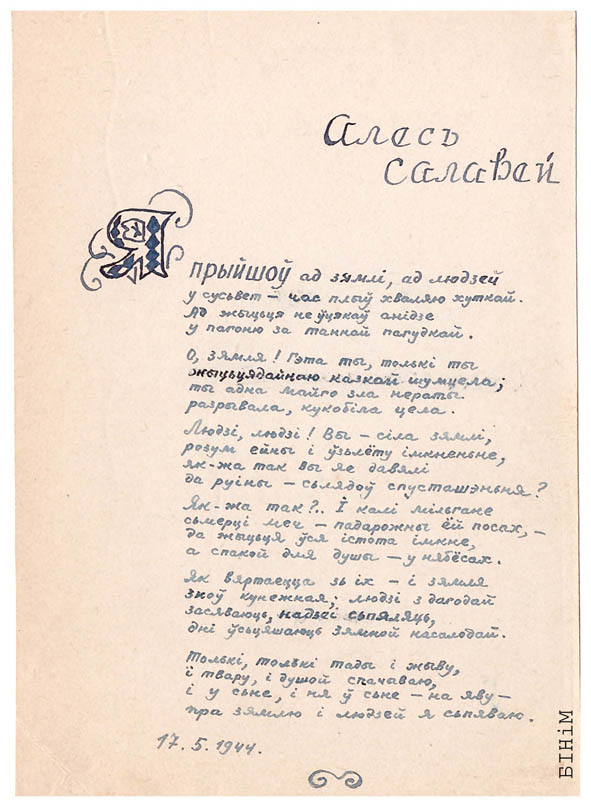 Алесь
Салавей
Я прыйшоў ад зямлі, ад людзей
у сусьвет — час плыў хваляю хуткай.
Ад жыцьця не ўцякаў анідзе
у пагоню за таннай пагудкай.
О, зямля! Гэта ты, толькі ты
жыцьцядайнаю казкай шумцела;
ты адна майго зла нераты
разрывала, кукобіла цела.
Людзі, людзі! Вы — сіла зямлі,
розум ейны і ўзьлёту імкненьне,
як-жа так вы яе давялі
да руіны — сьлядоў спусташэньня?
Як-жа так?.. І калі мільгане
сьмерці меч — падарожны ёй посах, —
да жыцьця ўся істота імкне,
а спакой для душы — у нябёсах.
Як вяртаецца зь іх — і зямля
зноў кунежная; людзі з дагодай
засяваюць, надзеі сьпяляць,
дні ўсьцяшаюць зямной насалодай.
Толькі, толькі тады і жыву,
і твару, і душой спачываю,
і у сьне, і ня ў сьне — на яву —
пра зямлю і людзей я сьпяваю.
17.5.1944.
БІНіМ